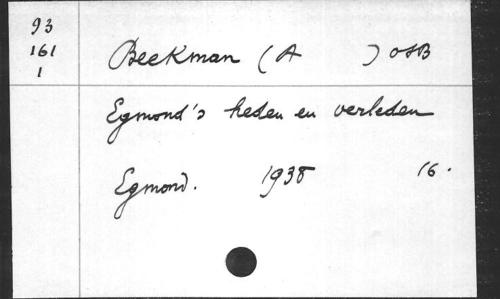 93
161
1
Beekman (A ) OSB
Egmond's heden en verleden
Egmond. 1938 16.